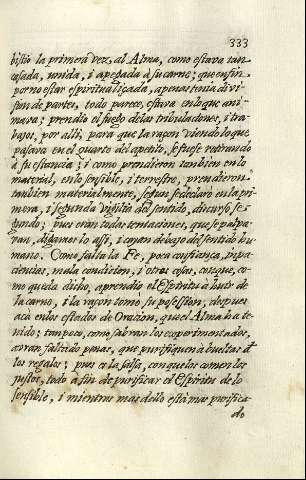 333
bistio la primera vez, al Alma, como estava tan
casada, unida, i apegada à su carne; que en fin,
por no estar espiritualiçada, apenas tenia divi-
sion de partes, todo parece, estava en lo que ani-
mava; prendio el fuego de las tribulaciones, i tra-
bajos, por alli, para que la raçon viendo lo que
pasava en el quarto del apetito, se fuese retirando
à su estancia; i como prendieron tambien en lo
material, en lo sensible, i terrestre, prendieron
tambien materialmente, segun se declarò en la pri-
mera, i segunda vigilia del sentido, discurso se-
gundo; pues eran todas tentaciones, que se palpa-
van, digamos lo assi, i caian debajo del sentido hu-
mano. Como falta la Fe, poca confiança, inpa-
ciencias, mala condicion, i otras cosas, con que, co-
mo queda dicho, aprendio el Espiritu à huir de
la carne, i la raçon tomò su posession, despues
acà en los estados de Oracion, que el Alma ha te-
nido; tampoco, como sabran los experimentados,
avran faltado penas, que purifiquen à bueltas de
los regalos; pues es la salsa, con que los comen los
justos, todo à fin de purificar el Espiritu de lo
sensible, i mientras mas dello està mas purifica-
do